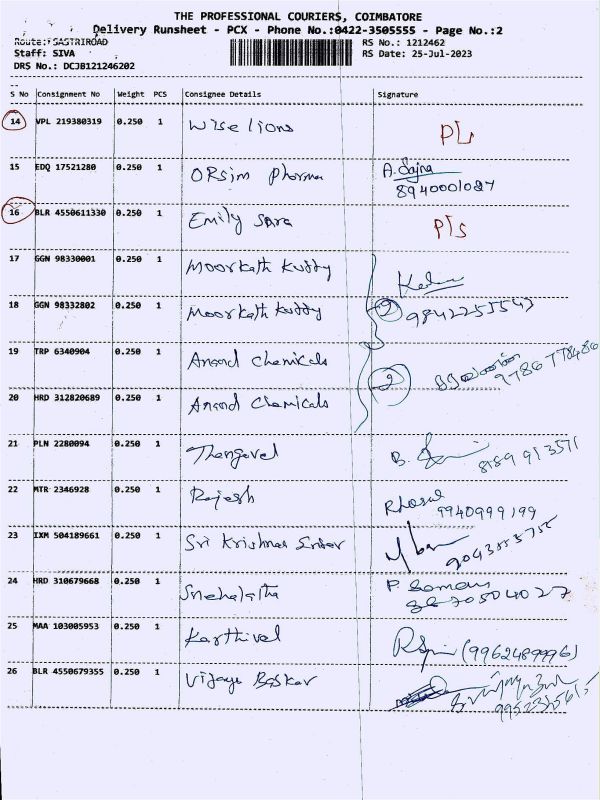 THE PROFESSIONAL COURIERS, COIMBATORE
Delivery Runsheet - PCX - Phone No.:0422-3505555 - Page No.:2
Route:
Staff: SIVA
DRS No.: DCJB121246202
RS No.: 1212462
RS Date: 25-Jul-2023
S No Consignment No Weight PCS Consignee Details Signature
14 VPL 219380319 0.250 1 Wise lions PL
15 EDQ 17521280 0.250 1 ORsim Pharma A. Sajna
8940001087
16 BLR 4550611330 0.250 1 Emily Sara P/s
17 GGN 98330001 0.250 1 Moorkath Kutty
18 GGN 98332802 0.250 1 Moorkath Kutty 2 9842255543
19 TRP 6340904 0.250 1 Anand Chemicals
20 HRD 312820689 0.250 1 Anand Chemicals 2 9786778486
21 PLN 2280094 0.250 1 Thangavel B. 8189913571
22 MTR 2346928 0.250 1 Rajesh
9940999199
23 IXM 504189661 0.250 1 Sri Krishna
24 HRD 310679668 0.250 1 Snehalatha P.
25 MAA 103005953 0.250 1 Karthivel (9962489996)
26 BLR 4550679355 0.250 1 Vijaya Baskar